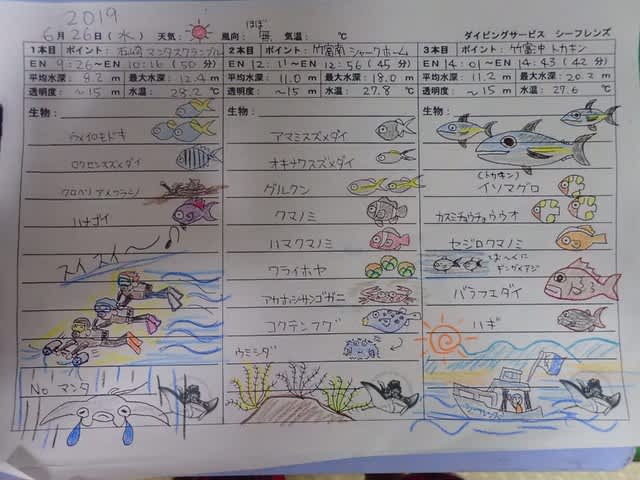 2019
6月26日(水) 天気: 風向: ほぼ無 気温: ℃ ダイビングサービス シーフレンズ
1本目 ポイント: 石崎 マンタスクランブル
EN 9:26~ 10:16 (50分)
平均水深: 8.2 m 最大水深: 12.4 m
透明度: ~15 m 水温: 28.2 ℃
生物:
ウメイロモドキ
ロクセンスズメダイ
クロヘリアメフラシ
ハナゴイ
スイスイ~
No マンタ
2本目 ポイント: 竹富南 シャークホーム
EN 12:11~ 12:56 (45分)
平均水深: 11.0 m 最大水深: 18.0 m
透明度: ~15 m 水温: 27.8 ℃
生物:
アマミスズメダイ
オキナワスズメダイ
グルクン
クマノミ
ハマクマノミ
ワライホヤ
アカホシサンゴガニ
コクテンフグ
ウミシダ
3本目 ポイント: 竹富沖 トカキン
EN 14:01~ 14:43 (42分)
平均水深: 11.2 m 最大水深: 20.2 m
透明度: ~15 m 水温: 27.6 ℃
生物:
(トカキン)
イソマグロ
カスミチョウチョウウオ
セジロクマノミ
ギンガメアジ
バラフエダイ
ハギ
シーフレンズ